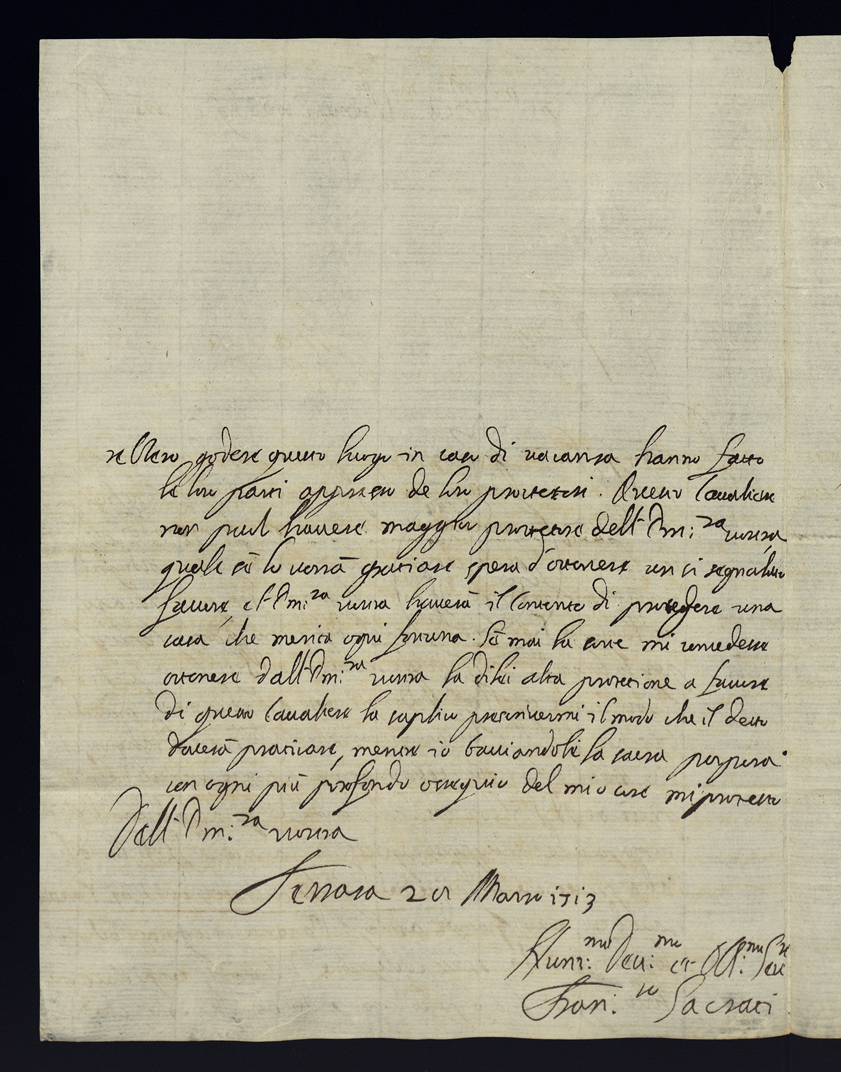 godere questo luogo in caso di vacanza hanno fatto
le loro parti appresso de loro protettori. Questo Cavaliere
non puol havere maggior protettore dell' Em:za vostra
quale se lo vorrà graziare spera d'ottenere un si segnalato
favore, et l'Em:za vostra haverà il Contento di proteggere una
casa che merita ogni fortuna. Se mai la sorte mi concedesse
ottenere dall' Em:za vostra la di lei alta protezione a favore
di questo Cavaliere la suplico prescrivermi il modo che il detto
doverà praticare, mentre io bacciandole la sacra porpora
con ogni più profondo ossequio del mio core mi protesto
Dell' Em:za vostra
Ferrara Marzo 1713
Hum:mo Dev:mo et Obl:mo Sre
Fran:co Sacrati